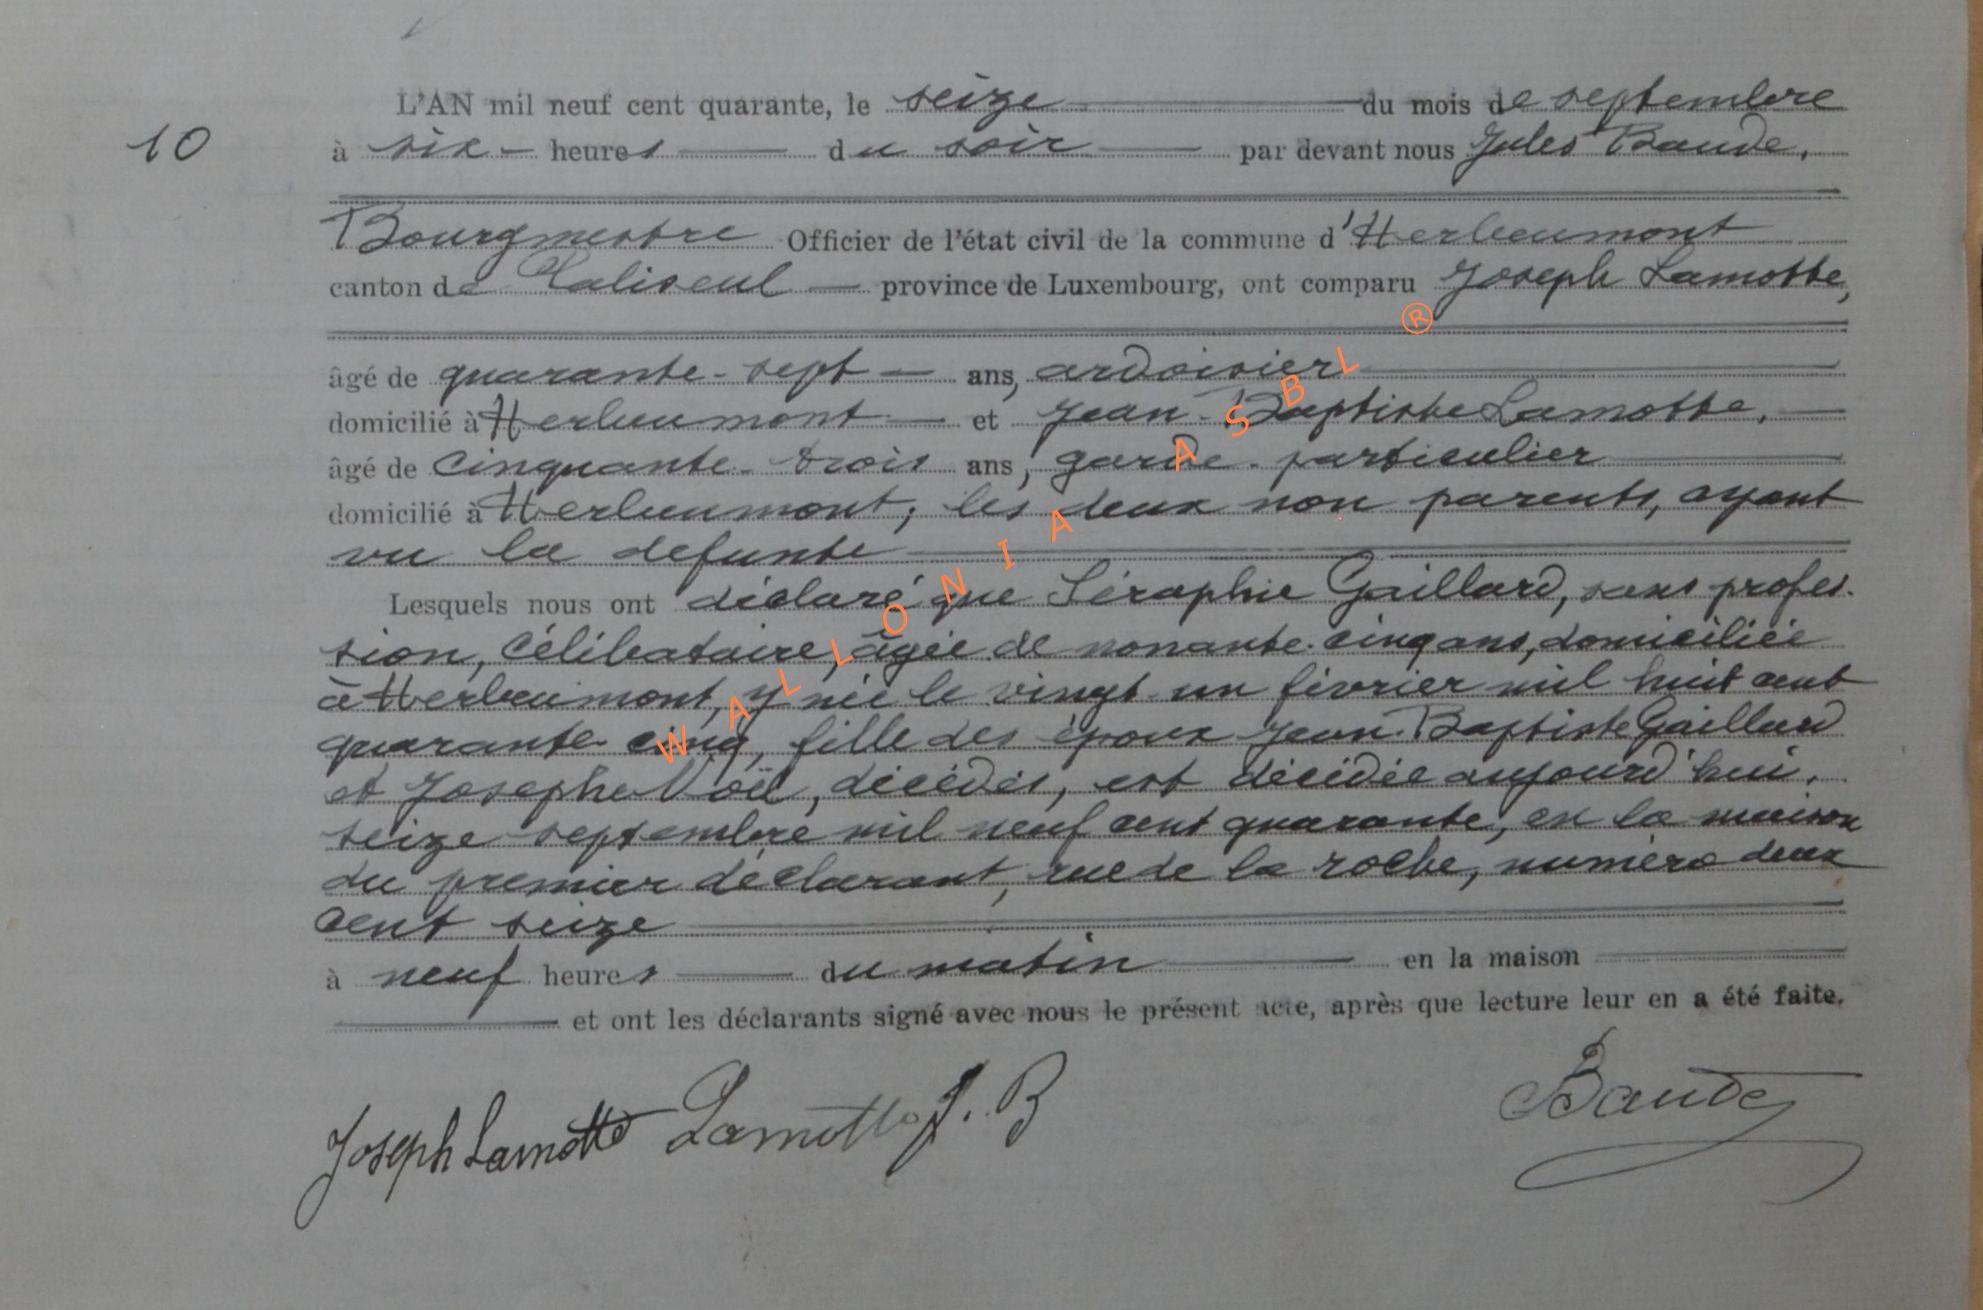 L'AN mil neuf cent quarante, le seize du mois de septembre
10
à six heures du soir par devant nous Jules Baude,
Bourgmestre Officier de l'état civil de la commune d'Herbeumont
canton de Paliseul province de Luxembourg, ont comparu Joseph Lamotte,
âgé de quarante-sept ans, ardoisier
domicilié à Herbeumont et Jean-Baptiste Lamotte,
âgé de cinquante-trois ans, garde-particulier
domicilié à Herbeumont; les deux non parents, ayant
vu la défunte
Lesquels nous ont déclaré que Séraphie Gaillard, sans profes-
sion, célibataire, âgée de nonante-cinq ans, domiciliée
à Herbeumont, y née le vingt-un février mil huit cent
quarante-cinq, fille des époux Jean-Baptiste Gaillard
et Josephe Noël, décédés, est décédée aujourd'hui,
seize septembre mil neuf cent quarante, en la maison
du premier déclarant, rue de la roche, numéro deux
cent seize
à neuf heures du matin en la maison
et ont les déclarants signé avec nous le présent acte, après que lecture leur en a été faite.
Joseph Lamotte Lamotte J. B Baude
WALLONIA ASBL ®